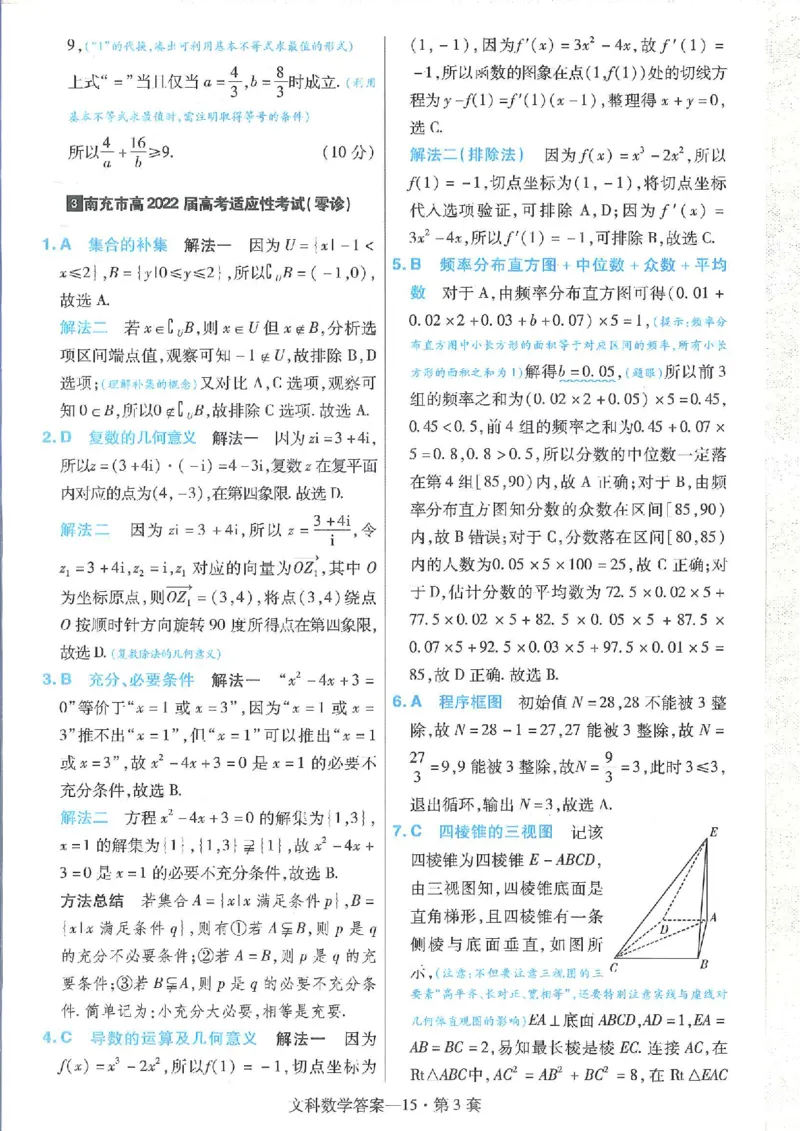 9,(“1”的代换,凑出可利用基本不等式求最值的形式)
上式“=”当且仅当 a=4/3,b=8/3时成立.(利用
基本不等式求最值时,需注明取得等号的条件)
所以4/a+16/b≥9. (10分)
3 南充市高2022届高考适应性考试(零诊)
1.A 集合的补集 解法一 因为U={x|-1<
x≤2},B={y|0≤y≤2},所以∁UB=(-1,0),
故选A.
解法二 若x∈∁UB,则x∈U但x∉B,分析选
项区间端点值,观察可知-1∉U,故排除B,D
选项;(理解补集的概念)又对比A,C选项,观察可
知0⊂B,所以0∉∁UB,故排除C选项.故选A.
2.D 复数的几何意义 解法一 因为zi=3+4i,
所以z=(3+4i)·(-i)=4-3i,复数z在复平面
内对应的点为(4,-3),在第四象限.故选D.
解法二 因为zi=3+4i,所以z=(3+4i)/i,令
z₁=3+4i,z₂=i,z₁对应的向量为OZ₁→,其中O
为坐标原点,则OZ₁→=(3,4),将点(3,4)绕点
O按顺时针方向旋转90度所得点在第四象限,
故选D.(复数除法的几何意义)
3.B 充分、必要条件 解法一 “x²-4x+3=
0”等价于“x=1或x=3”,因为“x=1或x=
3”推不出“x=1”,但“x=1”可以推出“x=1
或x=3”,故x²-4x+3=0是x=1的必要不
充分条件,故选B.
解法二 方程x²-4x+3=0的解集为{1,3},
x=1的解集为{1},{1,3}⫌{1},故x²-4x+
3=0是x=1的必要不充分条件,故选B.
方法总结 若集合A={x|x满足条件p},B=
{x|x满足条件q},则有①若A⫋B,则p是q
的充分不必要条件;②若A=B,则p是q的充
要条件;③若B⫋A,则p是q的必要不充分条
件.简单记为:小充分大必要,相等是充要.
4.C 导数的运算及几何意义 解法一 因为
f(x)=x³-2x²,所以f(1)=-1,切点坐标为
(1,-1),因为f′(x)=3x²-4x,故f′(1)=
-1,所以函数的图象在点(1,f(1))处的切线方
程为y-f(1)=f′(1)(x-1),整理得x+y=0,
选C.
解法二(排除法) 因为f(x)=x³-2x²,所以
f(1)=-1,切点坐标为(1,-1),将切点坐标
代入选项验证,可排除A,D;因为f′(x)=
3x²-4x,所以f′(1)=-1,可排除B,故选C.
5.B 频率分布直方图+中位数+众数+平均
数 对于A,由频率分布直方图可得(0.01+
0.02×2+0.03+b+0.07)×5=1,(提示:频率分
布直方图中小长方形的面积等于对应区间的频率,所有小长
方形的面积之和为1)解得b=0.05,(题眼)所以前3
组的频率之和为(0.02×2+0.05)×5=0.45,
0.45<0.5,前4组的频率之和为0.45+0.07×
5=0.8,0.8>0.5,所以分数的中位数一定落
在第4组[85,90)内,故A正确;对于B,由频
率分布直方图知分数的众数在区间[85,90)
内,故B错误;对于C,分数落在区间[80,85)
内的人数为0.05×5×100=25,故C正确;对
于D,估计分数的平均数为72.5×0.02×5+
77.5×0.02×5+82.5×0.05×5+87.5×
0.07×5+92.5×0.03×5+97.5×0.01×5=
85,故D正确.故选B.
6.A 程序框图 初始值N=28,28不能被3整
除,故N=28-1=27,27能被3整除,故N=
27/3=9,9能被3整除,故N=9/3=3,此时3≤3,
退出循环,输出N=3,故选A.
7.C 四棱锥的三视图 记该
四棱锥为四棱锥E-ABCD,
由三视图知,四棱锥底面是
直角梯形,且四棱锥有一条
侧棱与底面垂直,如图所
示,(注意:不但要注意三视图的三
要素“高平齐、长对正、宽相等”,还要特别注意实线与虚线对
几何体直观图的影响)EA⊥底面ABCD,AD=1,EA=
AB=BC=2,易知最长棱是棱EC.连接AC,在
Rt△ABC中,AC²=AB²+BC²=8,在Rt△EAC
E
A
D
C
B
文科数学答案—15·第3套